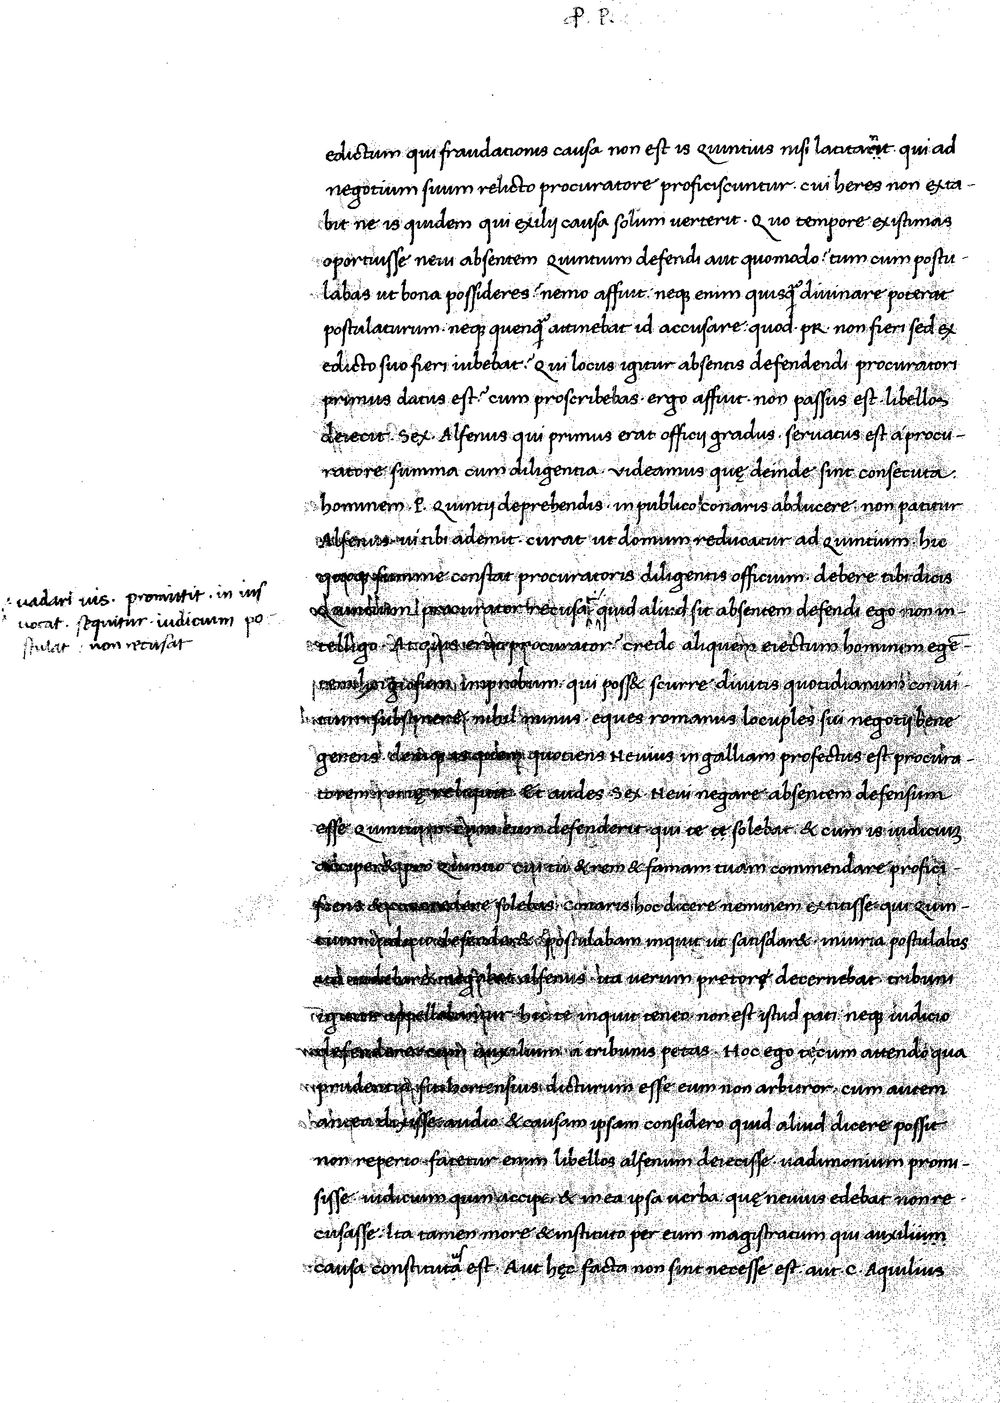 P. P.
edictum qui fraudationis causa non est is Quintius nisi latitarit qui ad
negotium suum relicto procuratore proficiscuntur. cui heres non exta-
bit ne is quidem qui exilij causa solum verterit. Quo tempore existimas
oportuisse nevi absentem Quintium defendi aut quomodo? tum cum postu-
labas ut bona possideres? nemo affuit. neq; enim quisq̃ divinare poterat
postulaturum. neq; quenq̃ attinebat id accusare quod. PR. non fieri sed ex
edicto suo fieri iubebat? Qui locus igitur absentis defendendi procuratori
primus datus est? cum proscribebas. ergo affuit. non passus est. libellos
deiecit. Sex. Alfenus qui primus erat officij gradus. servatus est a procu-
ratore summa cum diligentia. videamus quę deinde sint consecuta.
hominem P. Quintij deprehendis. in publico conaris abducere. non patitur
Alfenus. vi tibi ademit. curat ut domum reducatur ad Quintium. hic
quoq; summe constat procuratoris diligentis officium. debere tibi dicis
vadari vis. promittit. in ius
vocat. sequitur. iudicium po-
stulat. non recusat
Quintium procurator recusat quid aliud sit absentem defendi ego non in-
telligo. At quis erat procurator? credo aliquem eiectum hominem egē-
improbum. qui poss& scurre divitis quotidianum convi-
cium substinere. nihil minus. eques romanus locuples sui negotij bene
gerens. deniq; is quem quotiens Nevius in galliam profectus est procura-
torem rome reliquit. Et audes Sex. Nevi negare absentem defensum
esse Quintium cum eum defenderit qui te et solebat. & cum is iudicium
acciper& pro Quintio cui tu & rem & famam tuam commendare profici-
scens & concredere solebas. Conaris hoc dicere neminem extitisse qui Quin-
tium defender&. postulabam inquit ut satisdar&. iniuria postulabas
alfenus. ita verum pretorę decernebat. tribuni
igitur appellabantur. hic te inquit teneo. non est istud pati neq; iudicio
defendere cum auxilium a tribunis petas. Hoc ego tecum attendo qua
prudentia sit hortensius dicturum esse eum non arbitror. cum autem
antea dixisse audio & causam ipsam considero quid aliud dicere possit
non reperio. fatetur enim libellos alfenum deiecisse. vadimonium promi-
sisse. iudicium quin acciper& in ea ipsa verba. quę nevius edebat non re-
cusasse. Ita tamen more & instituto per eum magistratum qui auxilium
causa constitutus est. Aut hęc facta non sint necesse est. aut C. Aquilius